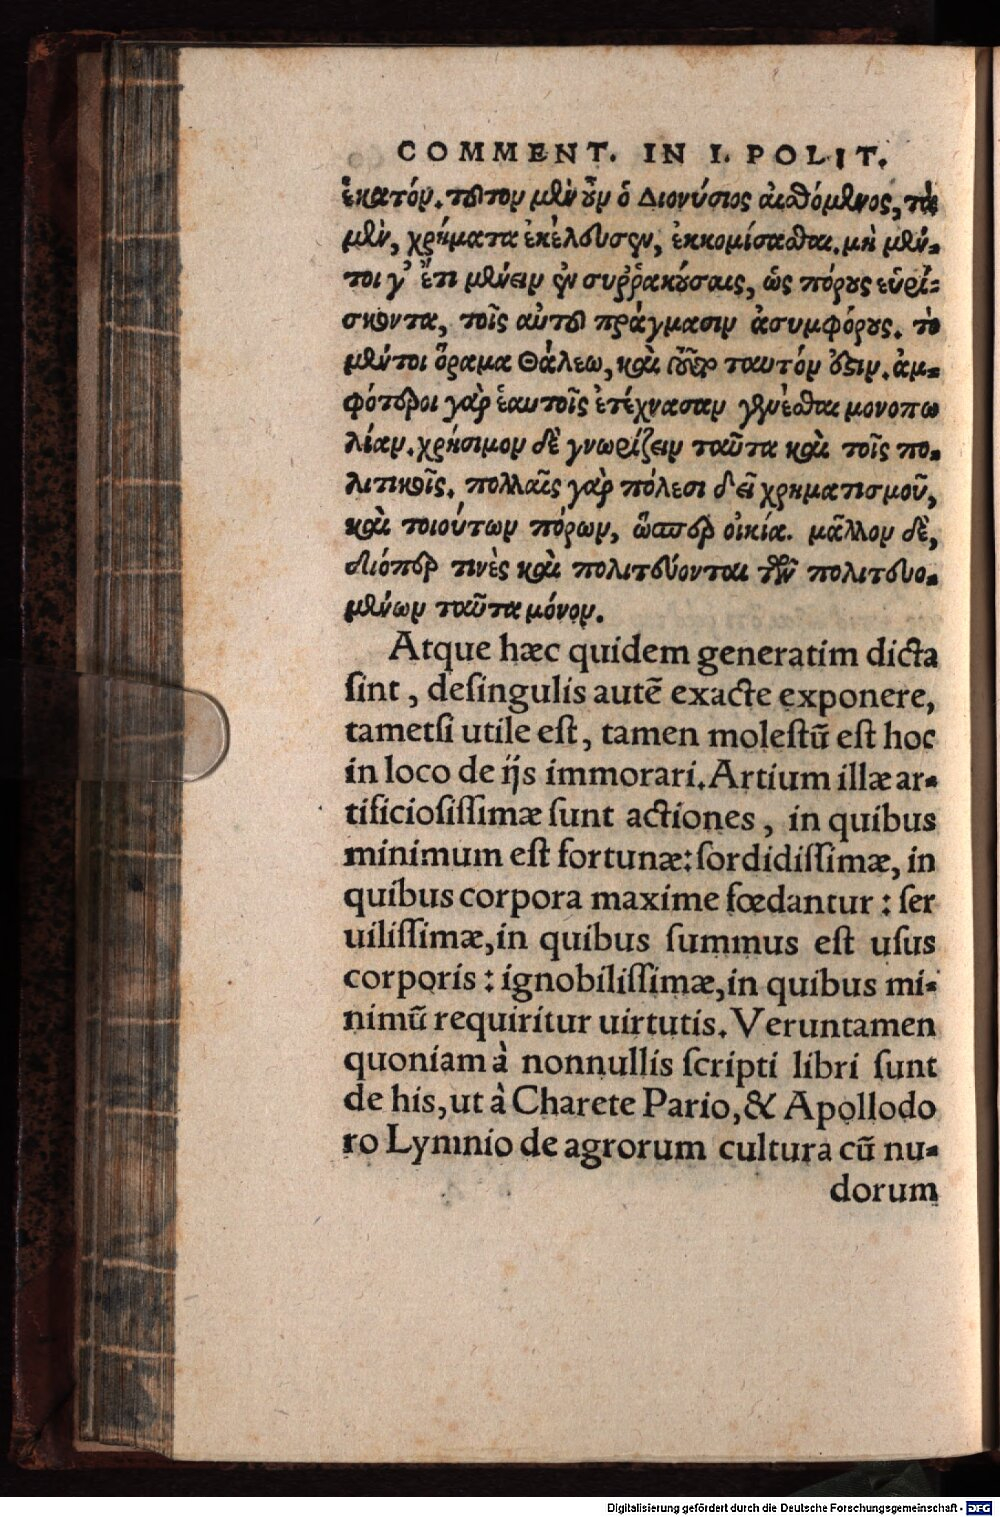 COMMENT. IN I. POLIT.
ἑκατόν. τοῦτον μὲν οὖν ὁ Διονύσιος αἰσθόμενος, τὰ
μὲν, χρήματα ἐκέλευσεν, ἐκκομίσασθαι. μὴ μέν-
τοι γ' ἔτι μένειν ἐν συῤῥακούσαις, ὡς πόρους εὑρί-
σκοντα, τοῖς αὐτοῦ πράγμασιν ἀσυμφόρους. τὸ
μέντοι ὅραμα Θάλεω, καὶ ταυτόν ἐστιν. ἀμ-
φότεροι γὰρ ἑαυτοῖς ἐτέχνασαν γενέσθαι μονοπω
λίαν. χρήσιμον δὲ γνωρίζειν ταῦτα καὶ τοῖς πο-
λιτικοῖς. πολλαῖς γὰρ πόλεσι δεῖ χρηματισμοῦ,
καὶ τοιούτων πόρων, ὥσπερ οἰκία. μᾶλλον δὲ,
διόπερ τινὲς καὶ πολιτεύονται τῶν πολιτευο-
μένων ταῦτα μόνον.
Atque hæc quidem generatim dicta
sint, desingulis autē exacte exponere,
tametsi utile est, tamen molestũ est hoc
in loco de ijs immorari. Artium illæ ar-
tificiosissimæ sunt actiones, in quibus
minimum est fortunæ: sordidissimæ, in
quibus corpora maxime fœdantur: ser
uilissimæ, in quibus summus est usus
corporis: ignobilissimæ, in quibus mi-
nimũ requiritur uirtutis. Veruntamen
quoniam à nonnullis scripti libri sunt
de his, ut à Charete Pario, & Apollodo
ro Lymnio de agrorum cultura cũ nu-
dorum
Digitalisierung gefördert durch die Deutsche Forschungsgemeinschaft - DFG